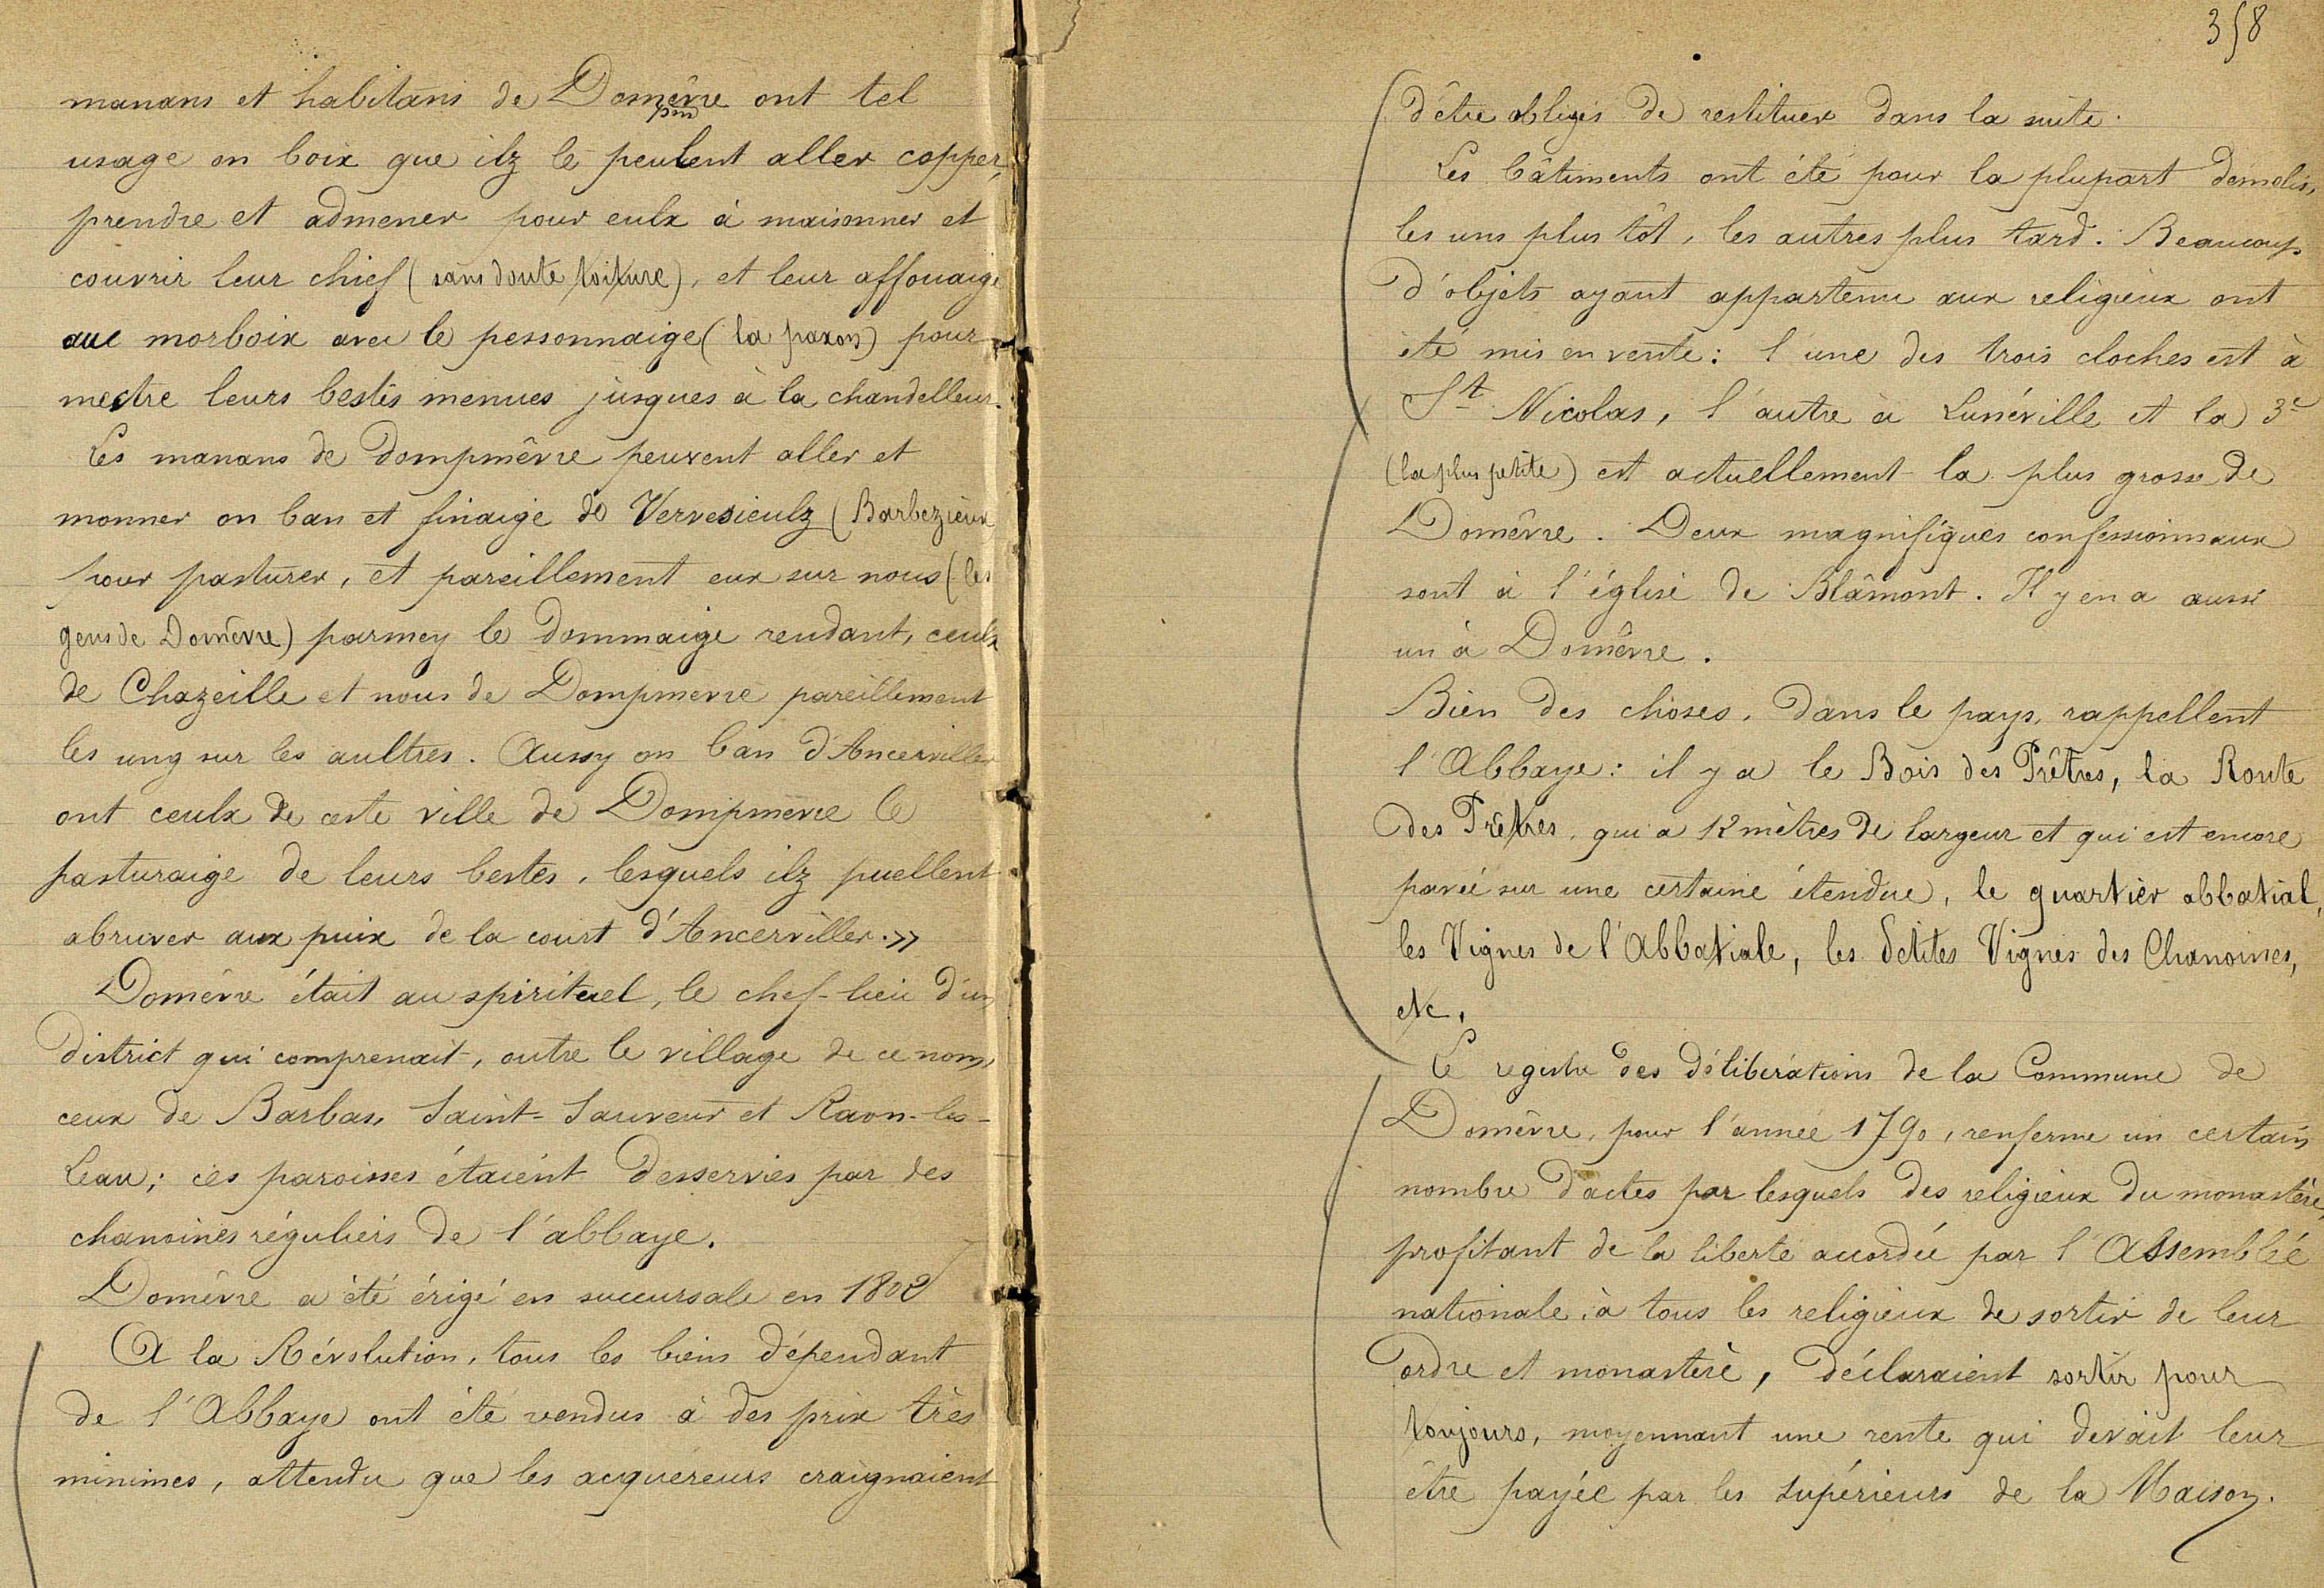 manans et habitans de Domêvre ont tel
usage on boix que ilz le peulent aller copper,
prendre et admener pour eulx à maisonner et
couvrir leur chief (sans doute toiture), et leur affouaige
aue morboix avec le pessonnaige (la paxon) pour
mectre leurs bestes menues jusques à la chandelleur.
Les manans de Dompmêvre peuvent aller et
monner on ban et finaige de Vervesieulz (Barbezieux
pour pasturer, et pareillement eux sur nous (les
gens de Domêvre) parmey le dommaige rendant, ceulx
de Chazeille et nous de Dompmevre pareillement
les ung sur les aultres. Aussy on ban d'Ancerviller
ont ceulx de ceste ville de Dompmevre le
pasturaige de leurs bestes, lesquels ilz puellent
abruver aux puix de la court d'Ancerviller.»
Domêvre était au spirituel, le chef-lieu d'un
district qui comprenait, outre le village de ce nom,
ceux de Barbas, Saint-Sauveur et Raon-les-
Leau; ces paroisses étaient desservies par des
chanoines réguliers de l'abbaye.
Domêvre a été érigé en succursale en 1802
A la Révolution, tous les biens dépendant
de l'Abbaye ont été vendus à des prix très
minimes, attendu que les acquéreurs craignaient
358
d'être obligés de restituer dans la suite.
Les bâtiments ont été pour la plupart démolis,
les uns plus tôt, les autres plus tard. Beaucoup
d'objets ayant appartenu aux religieux ont
été mis en vente: l'une des trois cloches est à
St Nicolas, l'autre à Lunéville et la 3e
(la plus petite) est actuellement la plus grosse de
Domêvre. Deux magnifiques confessionnaux
sont à l'église de Blâmont. Il y en a aussi
un à Domêvre.
Bien des choses, dans le pays, rappellent
l'Abbaye: il y a le Bois des Prêtres, la Route
des Prêtres, qui a 12 mètres de largeur et qui est encore
pavée sur une certaine étendue, le quartier abbatial,
les Vignes de l'Abbatiale, les Petites Vignes des Chanoines,
etc.
Le registre des délibérations de la Commune de
Domêvre, pour l'année 1790, renferme un certain
nombre d'actes par lesquels des religieux du monastère,
profitant de la liberté accordée par l'Assemblée
nationale à tous les religieux de sortir de leur
ordre et monastère, déclaraient sortir pour
toujours, moyennant une rente qui devait leur
être payée par les supérieurs de la Maison.